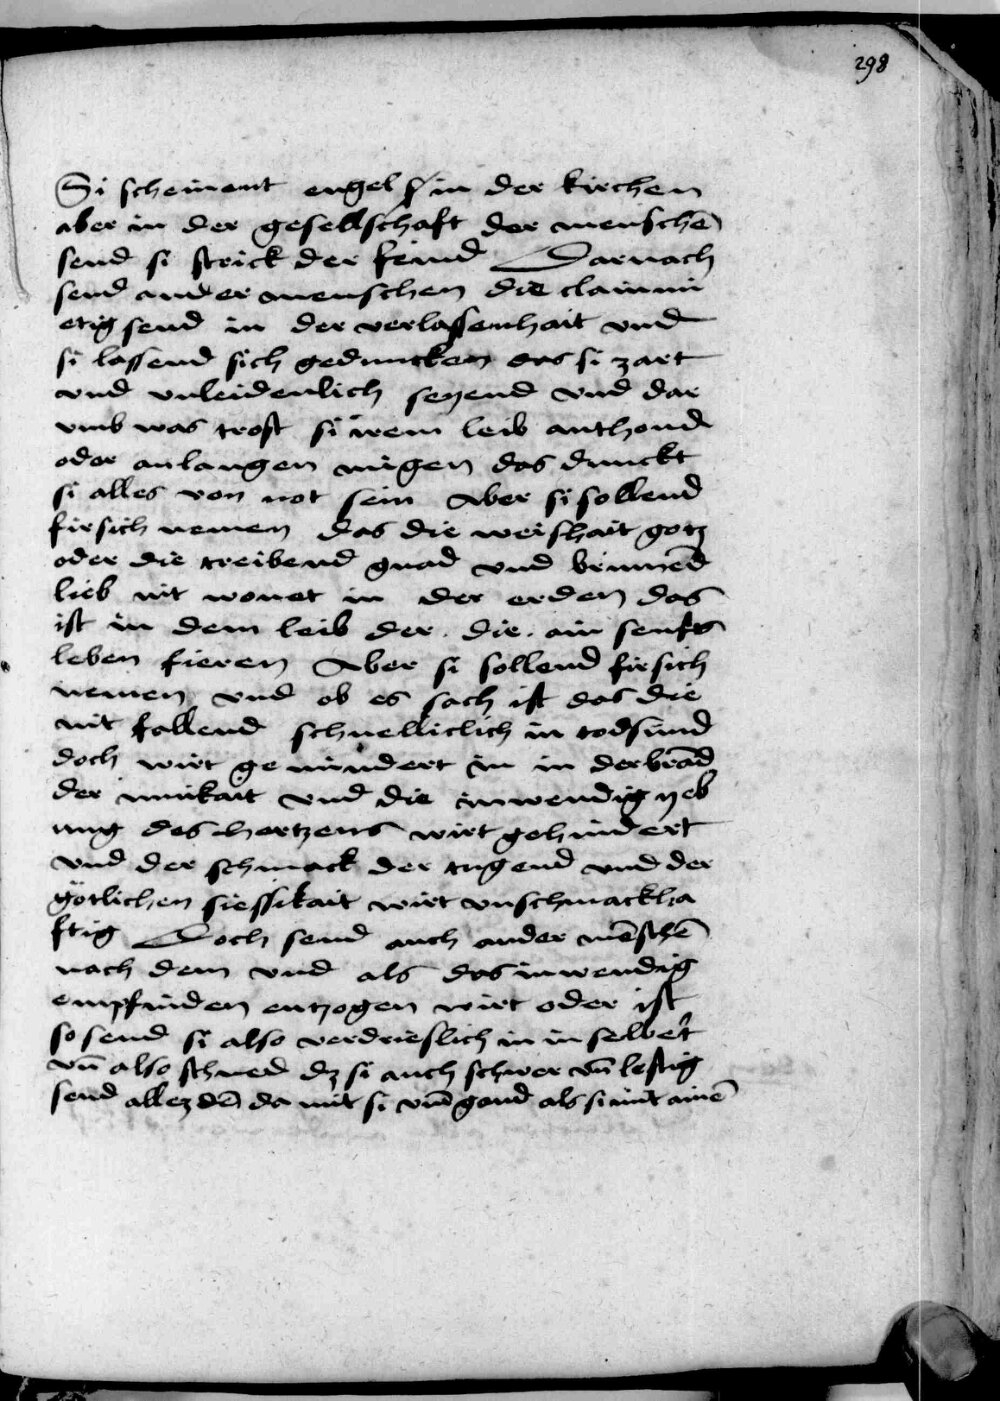 298
Si scheinent engel sin in der kirchen
aber in der gesellschaft der menschē
send si strick der feind Darnach
send ander menschen die clainmi
etig send in der verlassenhait vnd
si lassend sich geduncken das si zart
vnd vnleidenlich seyend vnd dar
vmb was trost si irem leib anthond
oder anlangen mügen das dunckt
si alles von not sein Aber si sollend
fir sich nemen das die weishait gotz
oder die treibend gnad vnd brinnēd
lieb nit wonet in der erden das
ist in dem leib der . die . ain senfts
leben fieren Aber si sollend fir sich
nemen vnd ob es sach ist das die
nit fallend schnelliclich in todsund
doch wirt gemindert in in der brād
der inikait vnd die inwendig yeb
ung des hertzens wirt gehindert
vnd der schmack der tugend vnd der
götlichen siessikait wirt vnschmackha
ftig Doch send auch ander mēschē
nach dem vnd als das inwendig
empfinden entzogen wirt oder ist
so send si also verdrieslich in in selbert
vn̄ also schned dz si auch schwer vn̄ lestig
send allez dē da mit si vm̄gond als si mit ainē